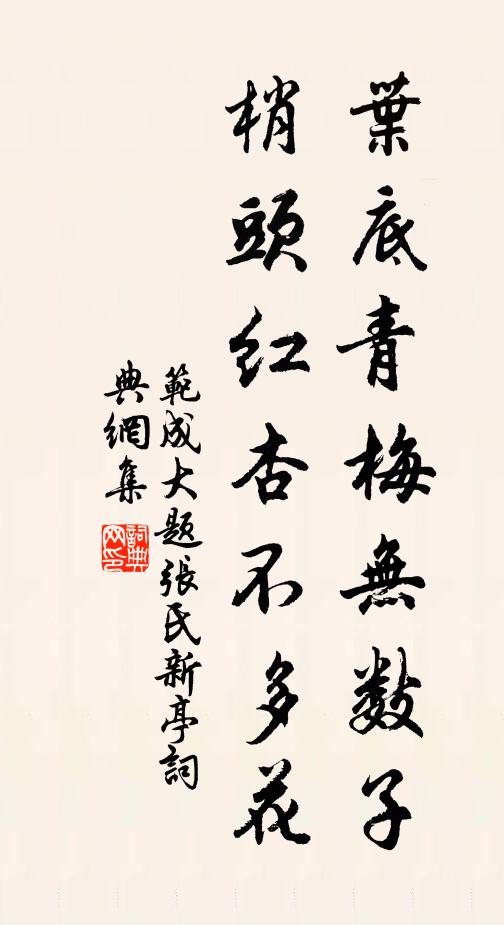 葉底青梅無數子
梢頭紅杏不多花
範成大題張氏新亭詞
典網集
詞典网印